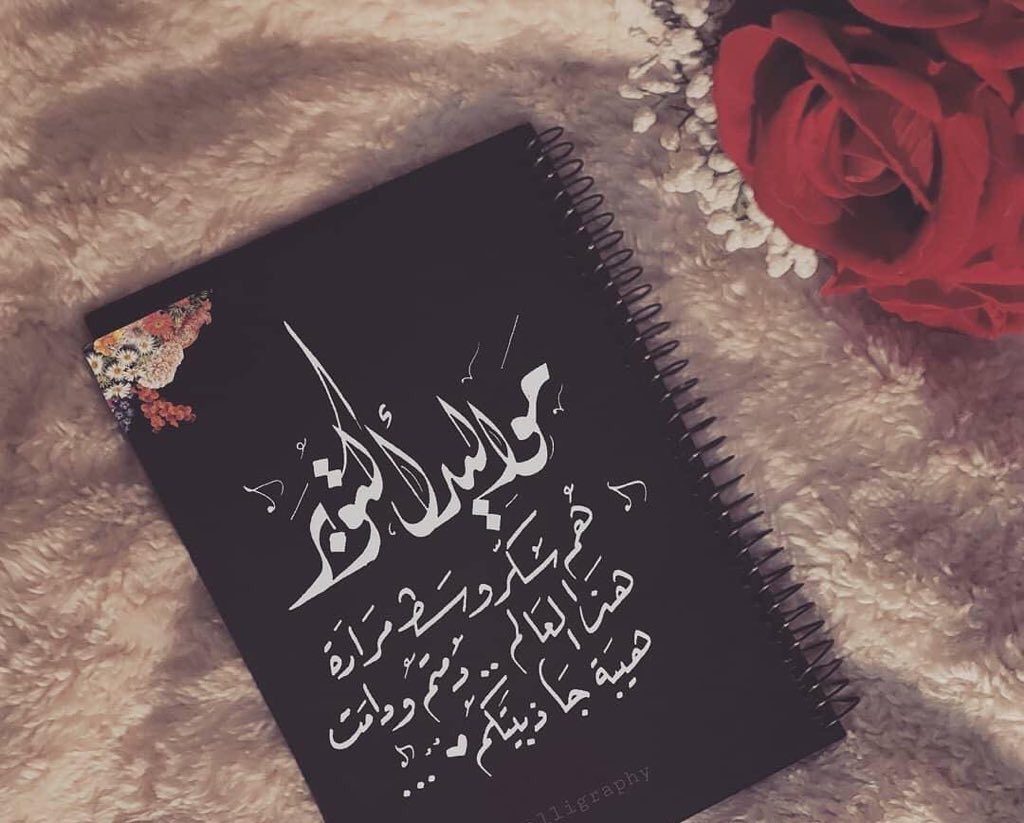 مَواليد أُكتوبَر
هُم سُكَّر وَسَط مَرَارَة
هَذا العَالم .. دُمتُم وَدامَت
هَيبَة جَاذبيتَكُم ...
alligraphy